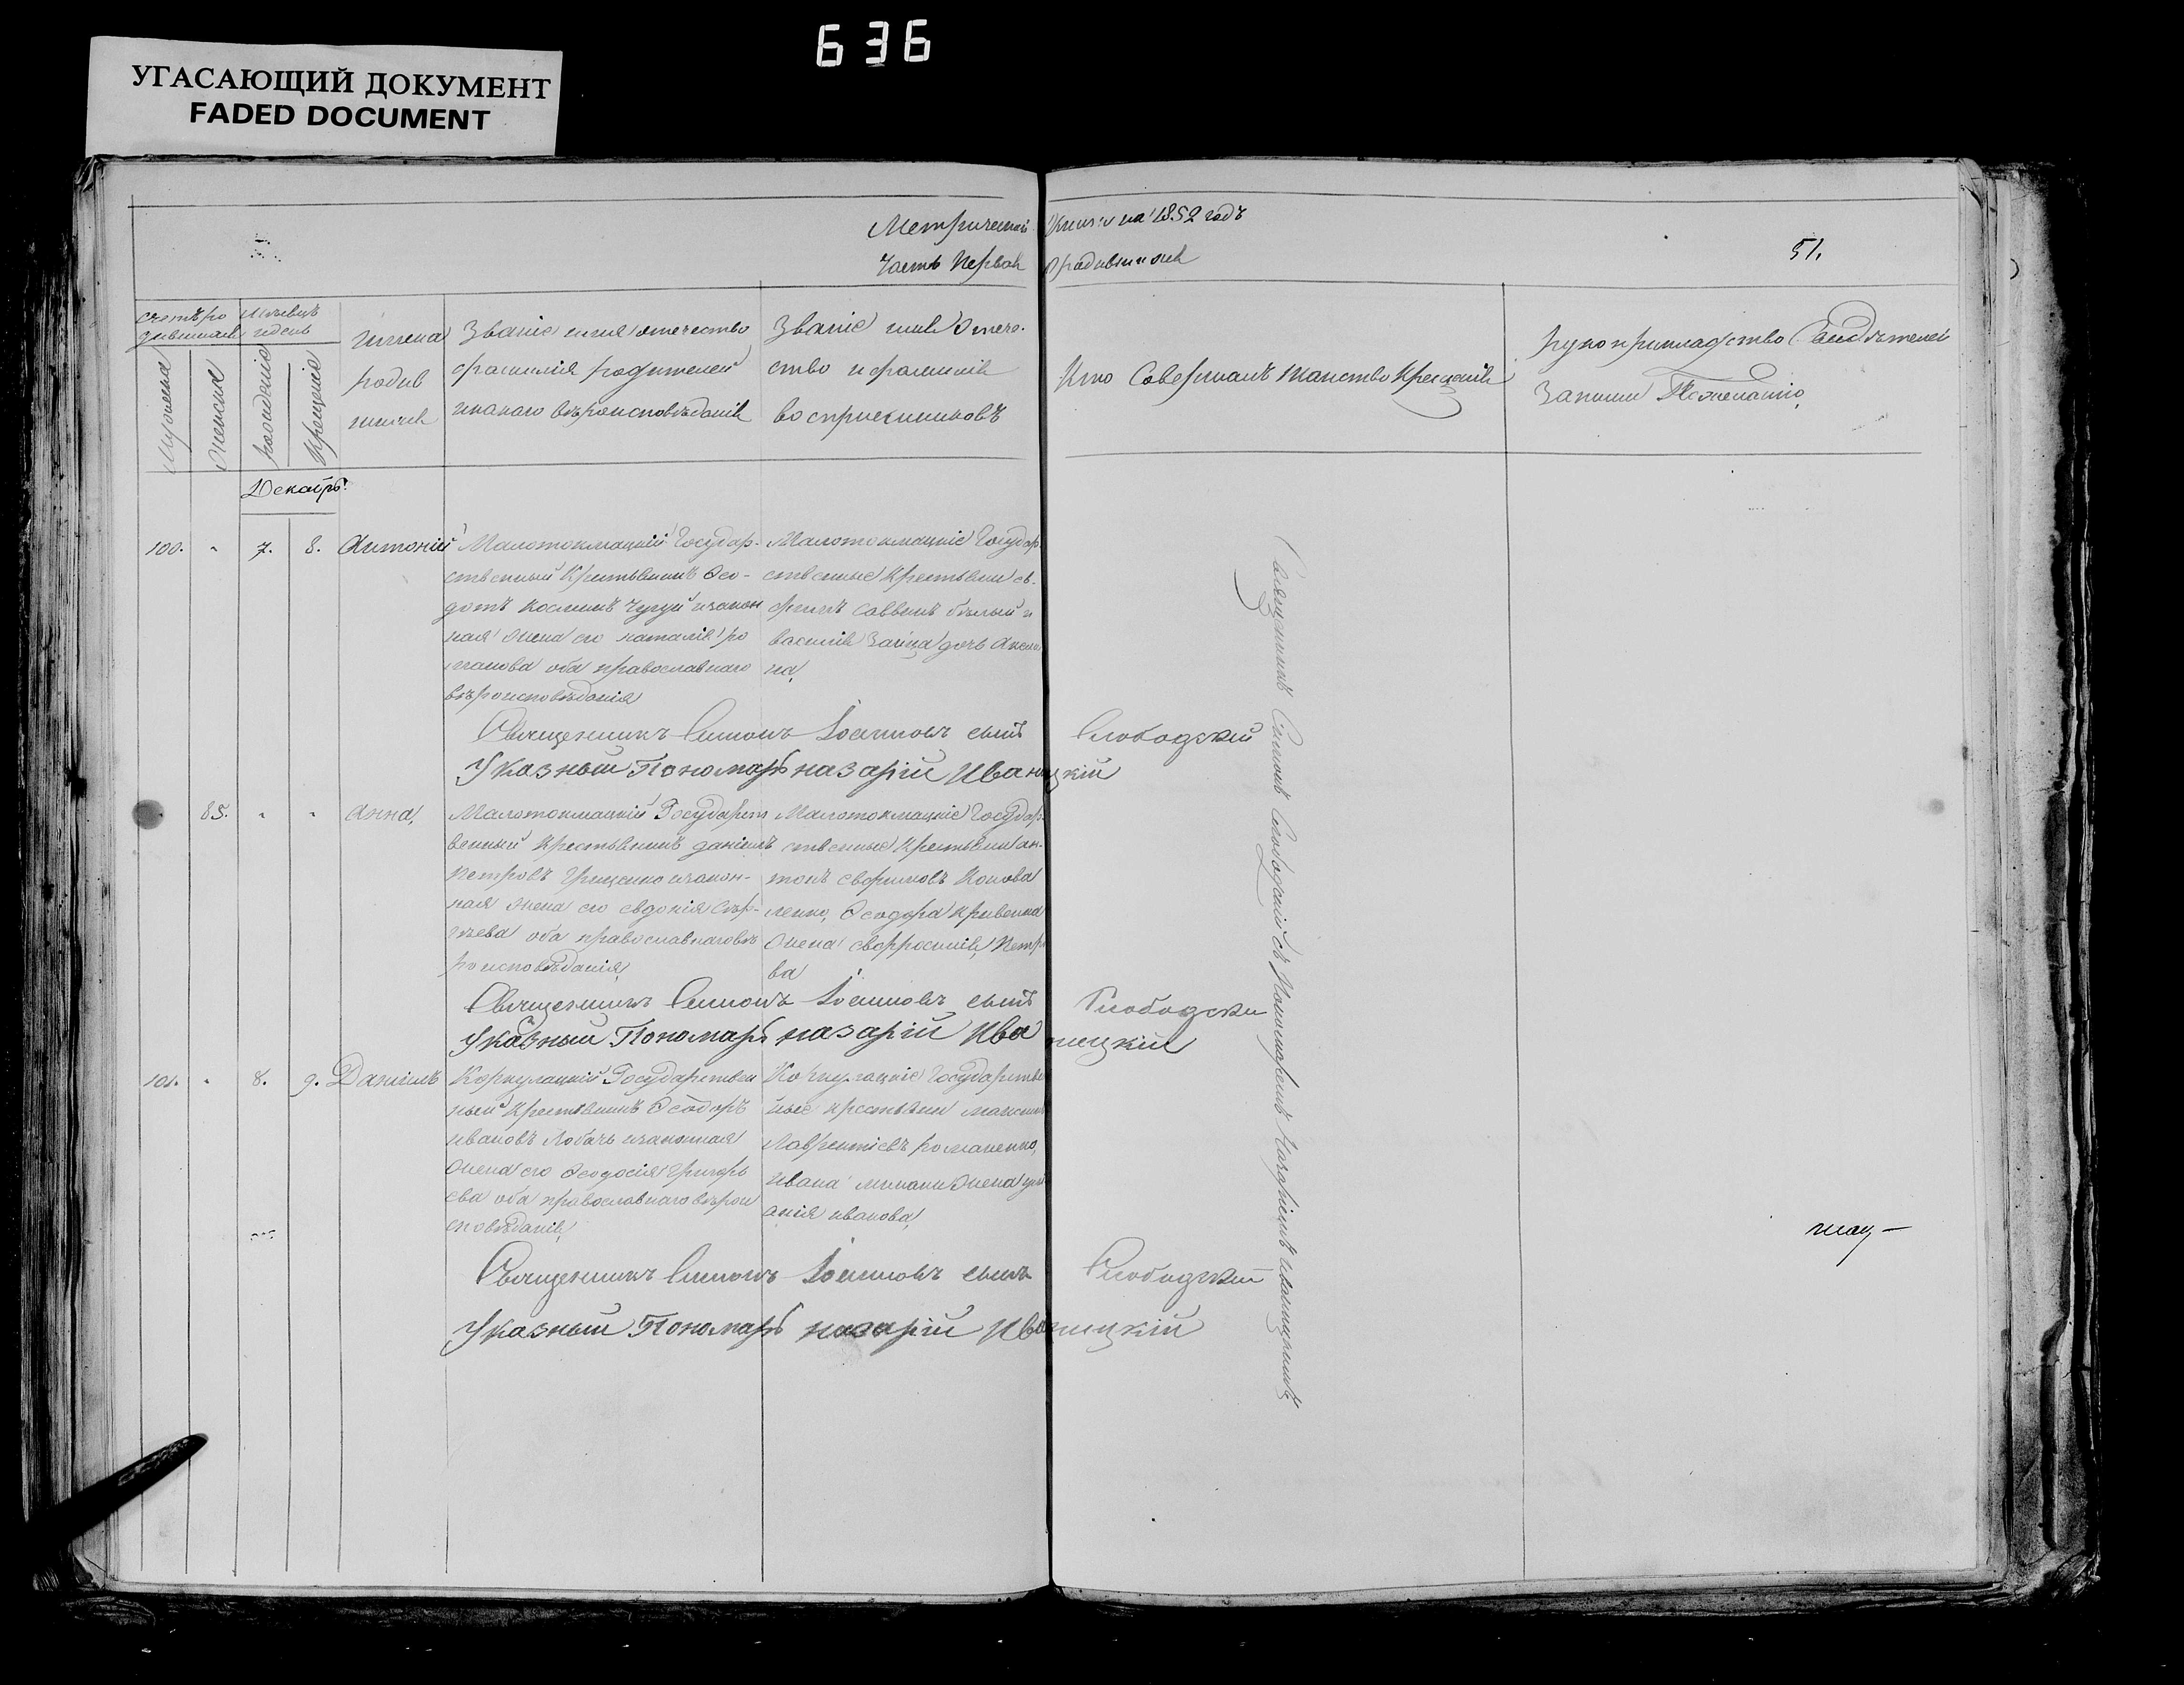 636
УГАСАЮЩИЙ ДОКУМЕНТ
FADED DOCUMENT
Метрической Книги на 1852 годъ
Часть Первая О родившихся
51.
счетъ родившихся
Мѣсяцъ и день
Мужеска
Женска
Рожденія
Крещенія
Имена родившихся
Званіе имя отечество
фамилія родителей
и какого вѣроисповѣданія
Званіе имя Отече-
ство и фамилія
воспріемниковъ
Кто Совершалъ таинство Крещенія
Рукоприкладство Свидѣтелей
Записи По желанію
Декабрь
100. " 7. 8. Антоній
Малотокмацкій Государ-
ственный Крестьянинъ Ѳео-
дотъ Косминъ Чугуй и закон
ная жена его наталія Ро
манова оба православнаго
вѣроисповѣданія
Малотокмацкіе Государ
ственные Крестьяни ев-
фимъ Саввинъ бѣлый и
василія Заица дочь Аксин
на,
Священникъ Симонъ Іоанновъ сынъ Слободскій
Указный Пономарь назарій Иваницкій
85. " " Анна,
Малотокмацкій Государст
венный Крестьянинъ даніилъ
Петровъ Грищенко и закон-
ная жена его евдокія Сер-
гѣева оба православнаго вѣ
роисповѣданія,
Малотокмацкіе Государ-
ственные Крестьяни ан-
тонъ ефимовъ Конова
ленко, Ѳеодора Кривенка
жена евфросинія, Петро
ва
Священникъ Симонъ Іоанновъ сынъ Слободски
Указный Пономарь назарій Иваницкій
101. " 8. 9. Даніилъ
Коркулацкій Государствен
ный крестьянинъ Ѳеодоръ
ивановъ Лобачь и законная
жена его Ѳеодосія Григорь
ева оба православнаго вѣрои
сповѣданія,
Коркулацкіе Государствен
ные крестьяни максимъ
Лаврентіевъ Романенко,
Ивана жена
анія иванова,
Священникъ Симонъ Іоанновъ сынъ Слободскій
Указный Пономарь назарій Иваницкій
Священникъ Симонъ Слободскій съ Пономаремъ Назаріемъ Иваницкимъ